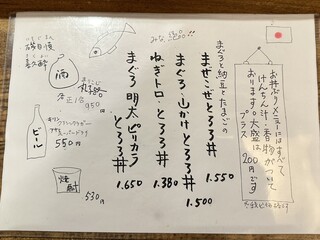 お丼ぶりメニューにはすべて
けんちん汁・香物がついて
おります。大盛は200円です
プラス
まぐろと納豆とたまごの
まぜこぜとろろ丼
1.550
まぐろ・山かけとろろ丼
1.500
みな
ねぎトロ・とろろ丼
1.380
まぐろ明太ピリカラ
とろろ丼
1.650
磯自慢
喜久酔
酒
各正1合
950円
ビール
550円
焼酎
530円